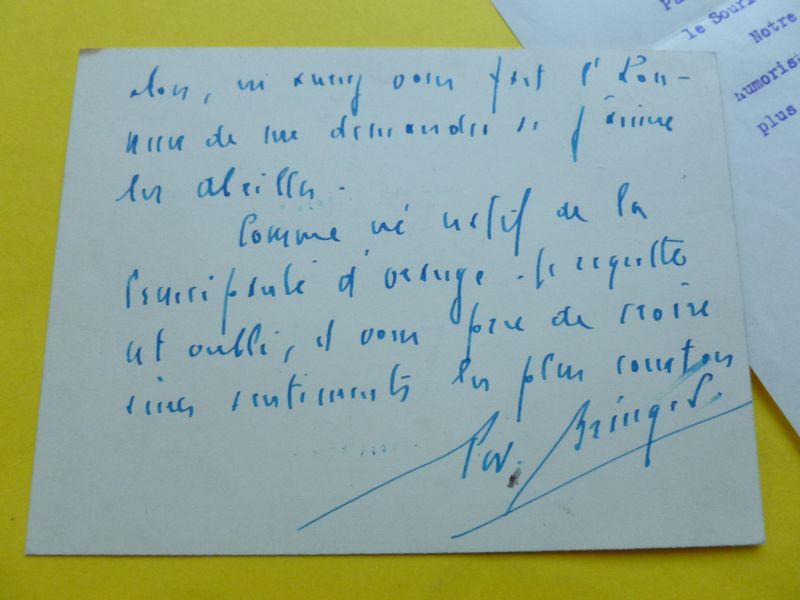 alors, ni quoy vous fait l'hon-
neur de me demander si j'aime
les abeilles.
Comme né natif de la
Principauté d'Orange. Je regrette
cet oubli, et vous prie de croire
mes sentiments les plus
Rod. Bringer.
Pa
le Souri
Notre
humoris
plus